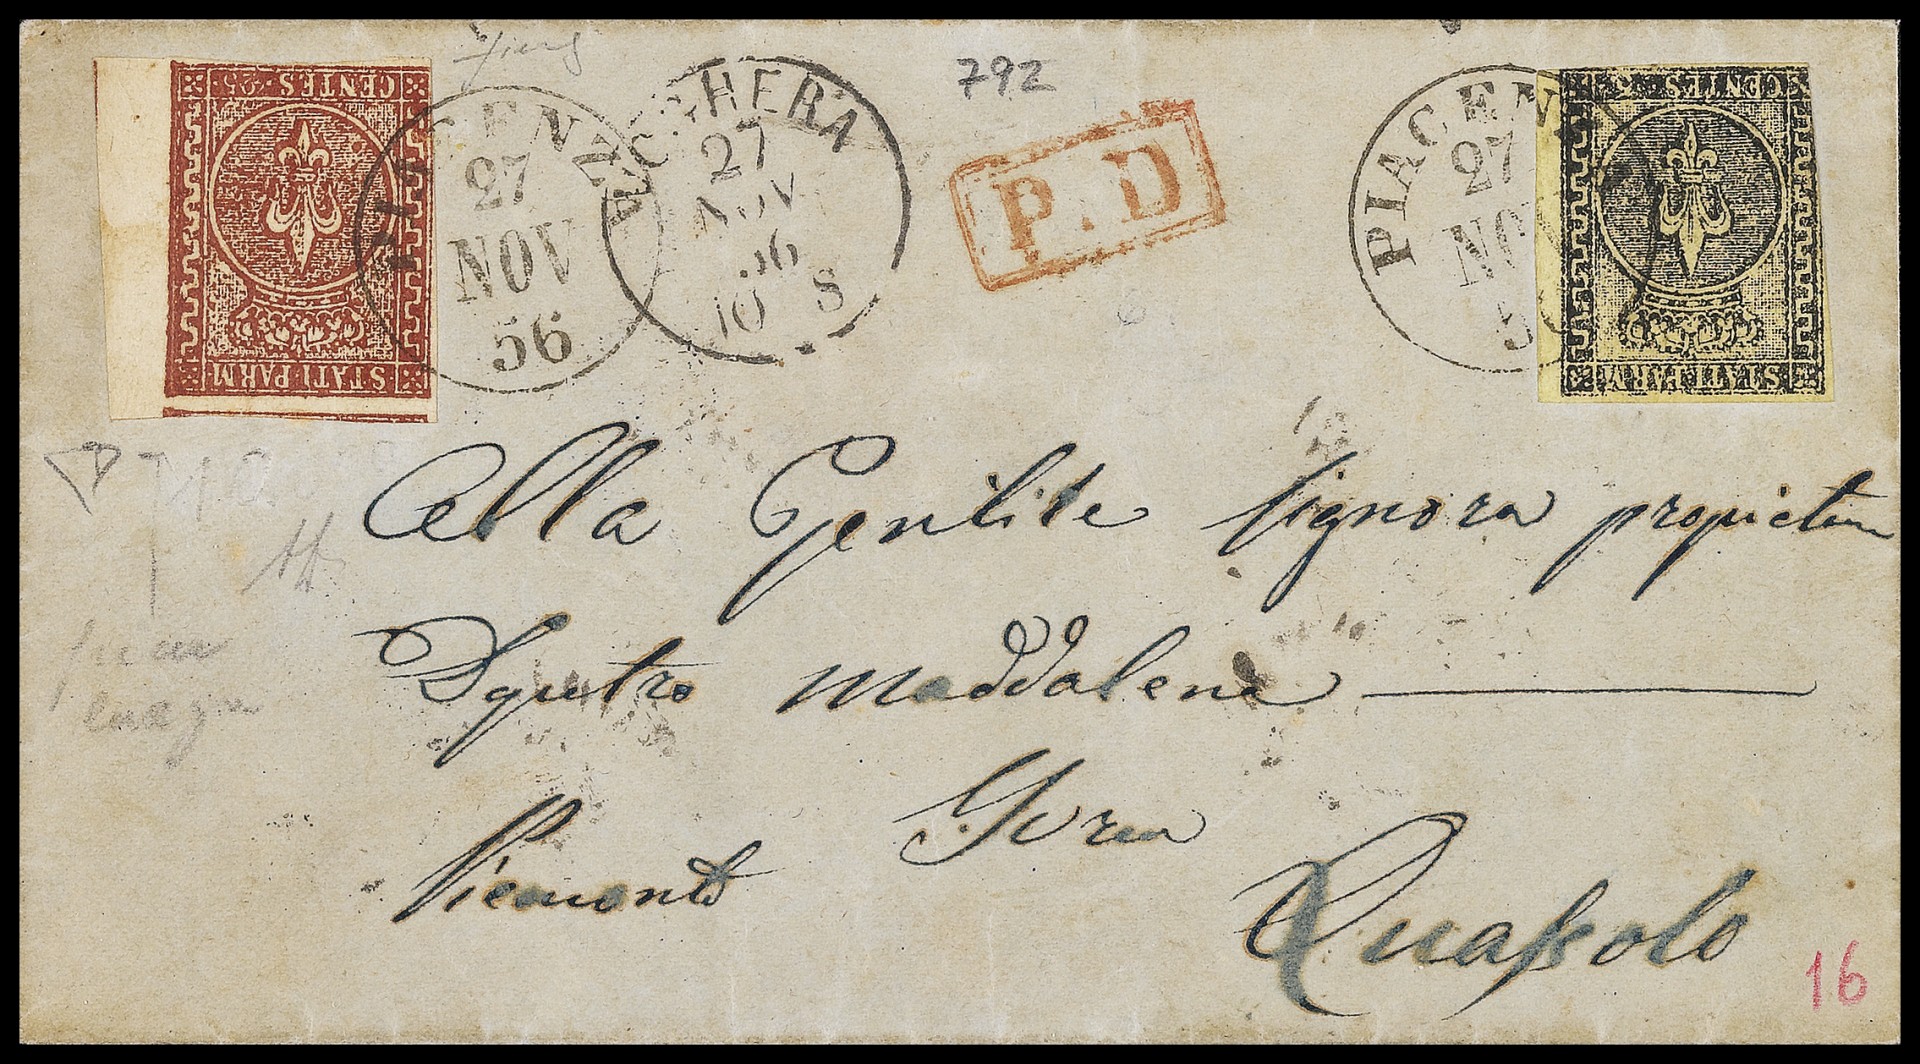 792
CENTES. 25
STATI PARM
PIACENZA
27
NOV
56
VOGHERA
27
NOV
56
10 S
P. D
PIACENZ
27
NOV
56
CENTES
STATI PARM
Alla Gentile Signora proprietaria
Maddalena
Ivrea
Piemonte
Quassolo
16